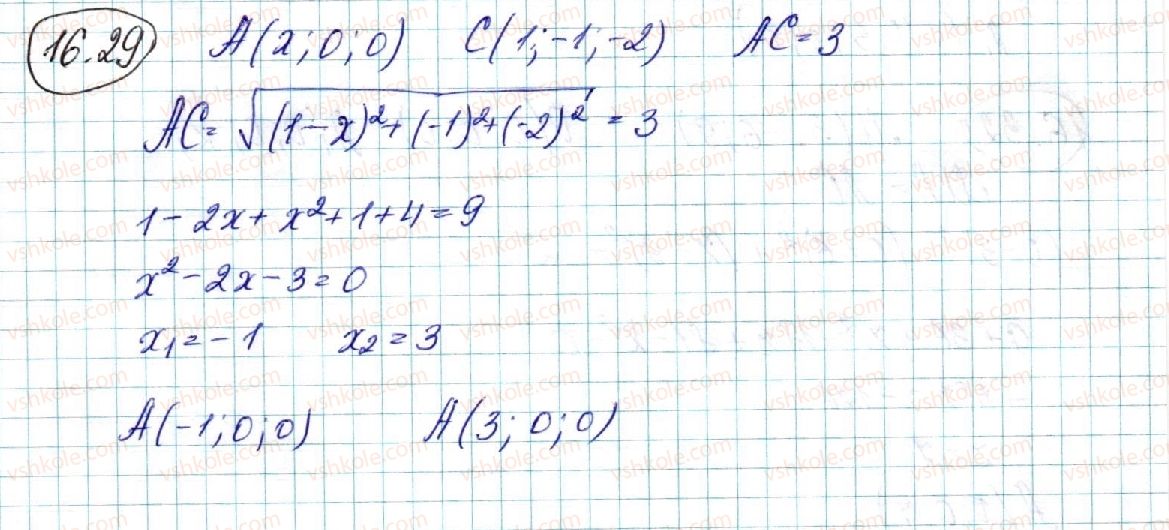 16.29 A(x; 0; 0) C(1; -1; -2) AC = 3
AC = √((1-x)²+(-1)²+(-2)²) = 3
1 - 2x + x² + 1 + 4 = 9
x² - 2x - 3 = 0
x₁ = -1 x₂ = 3
A(-1; 0; 0) A(3; 0; 0)
vshkole.com